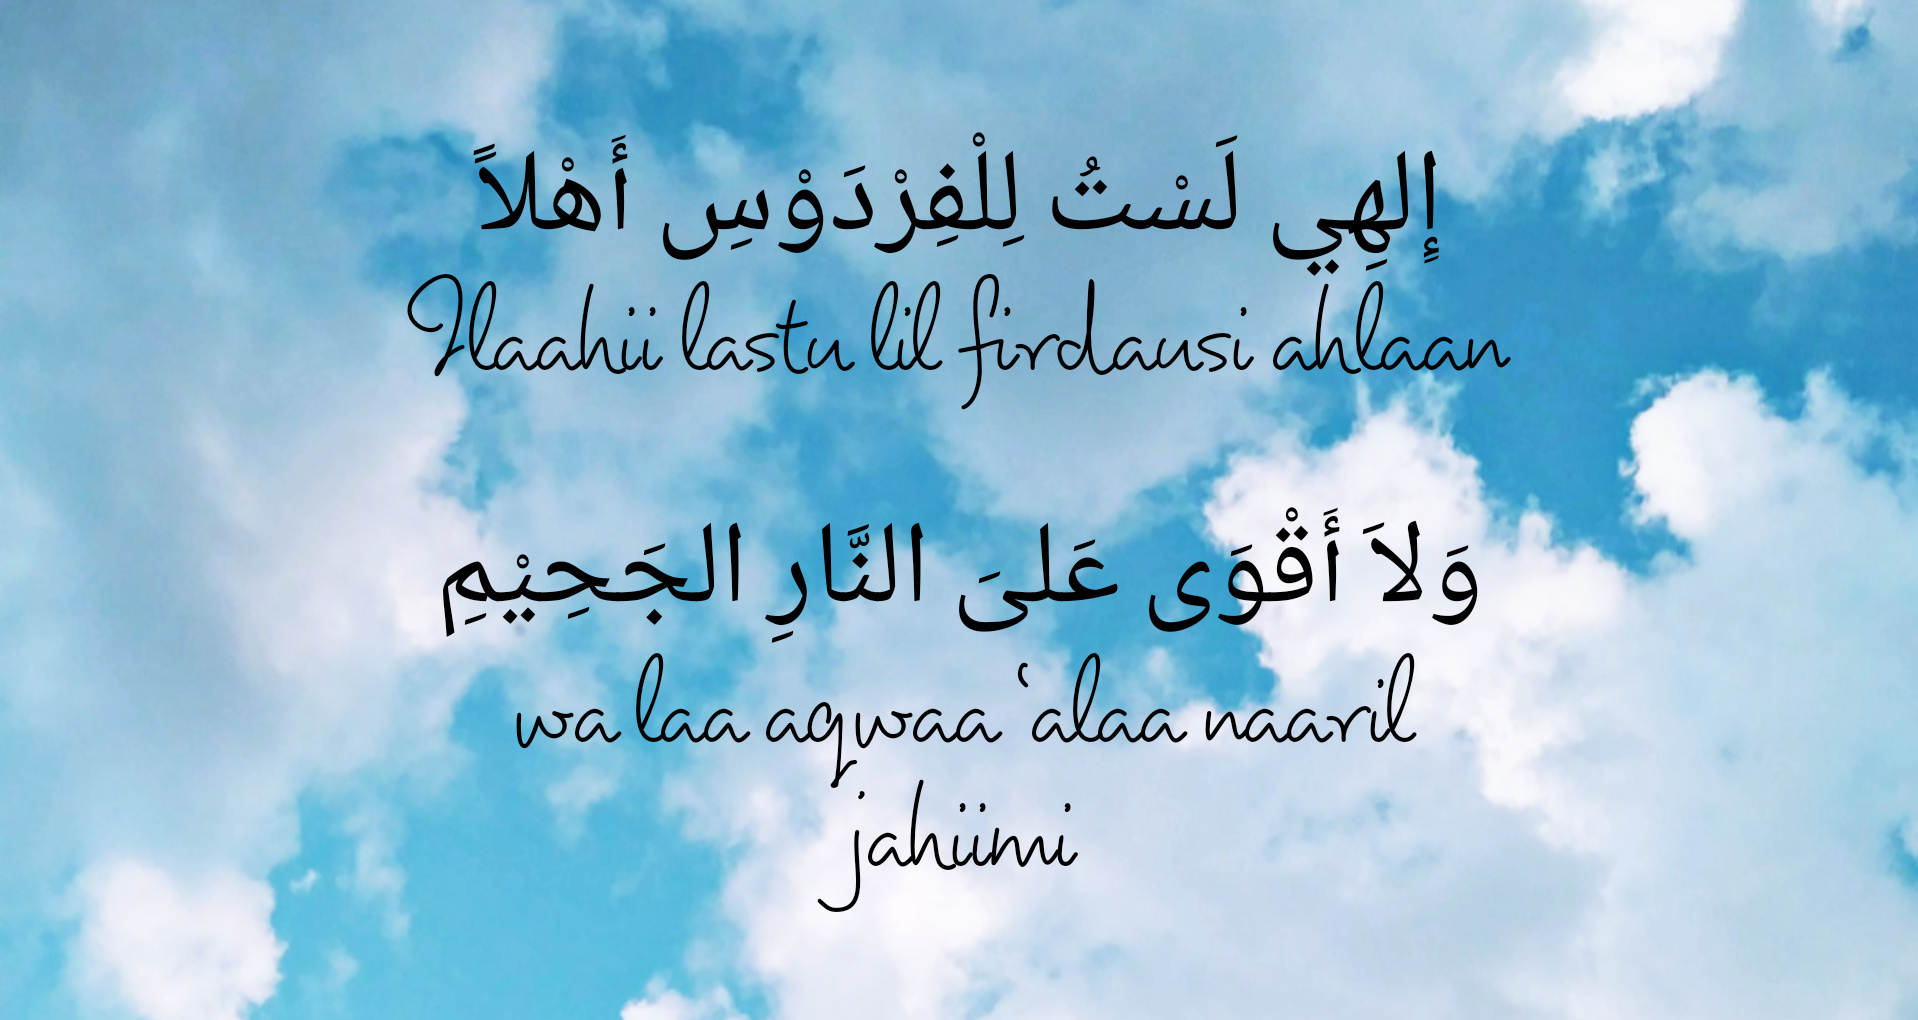 إِلهِي لَسْتُ لِلْفِرْدَوْسِ أَهْلاً
Ilaahii lastu lil firdausi ahlaan
وَلاَ أَقْوَى عَلىَ النَّارِ الجَحِيْمِ
wa laa aqwaa ‘alaa naaril
jahiimi